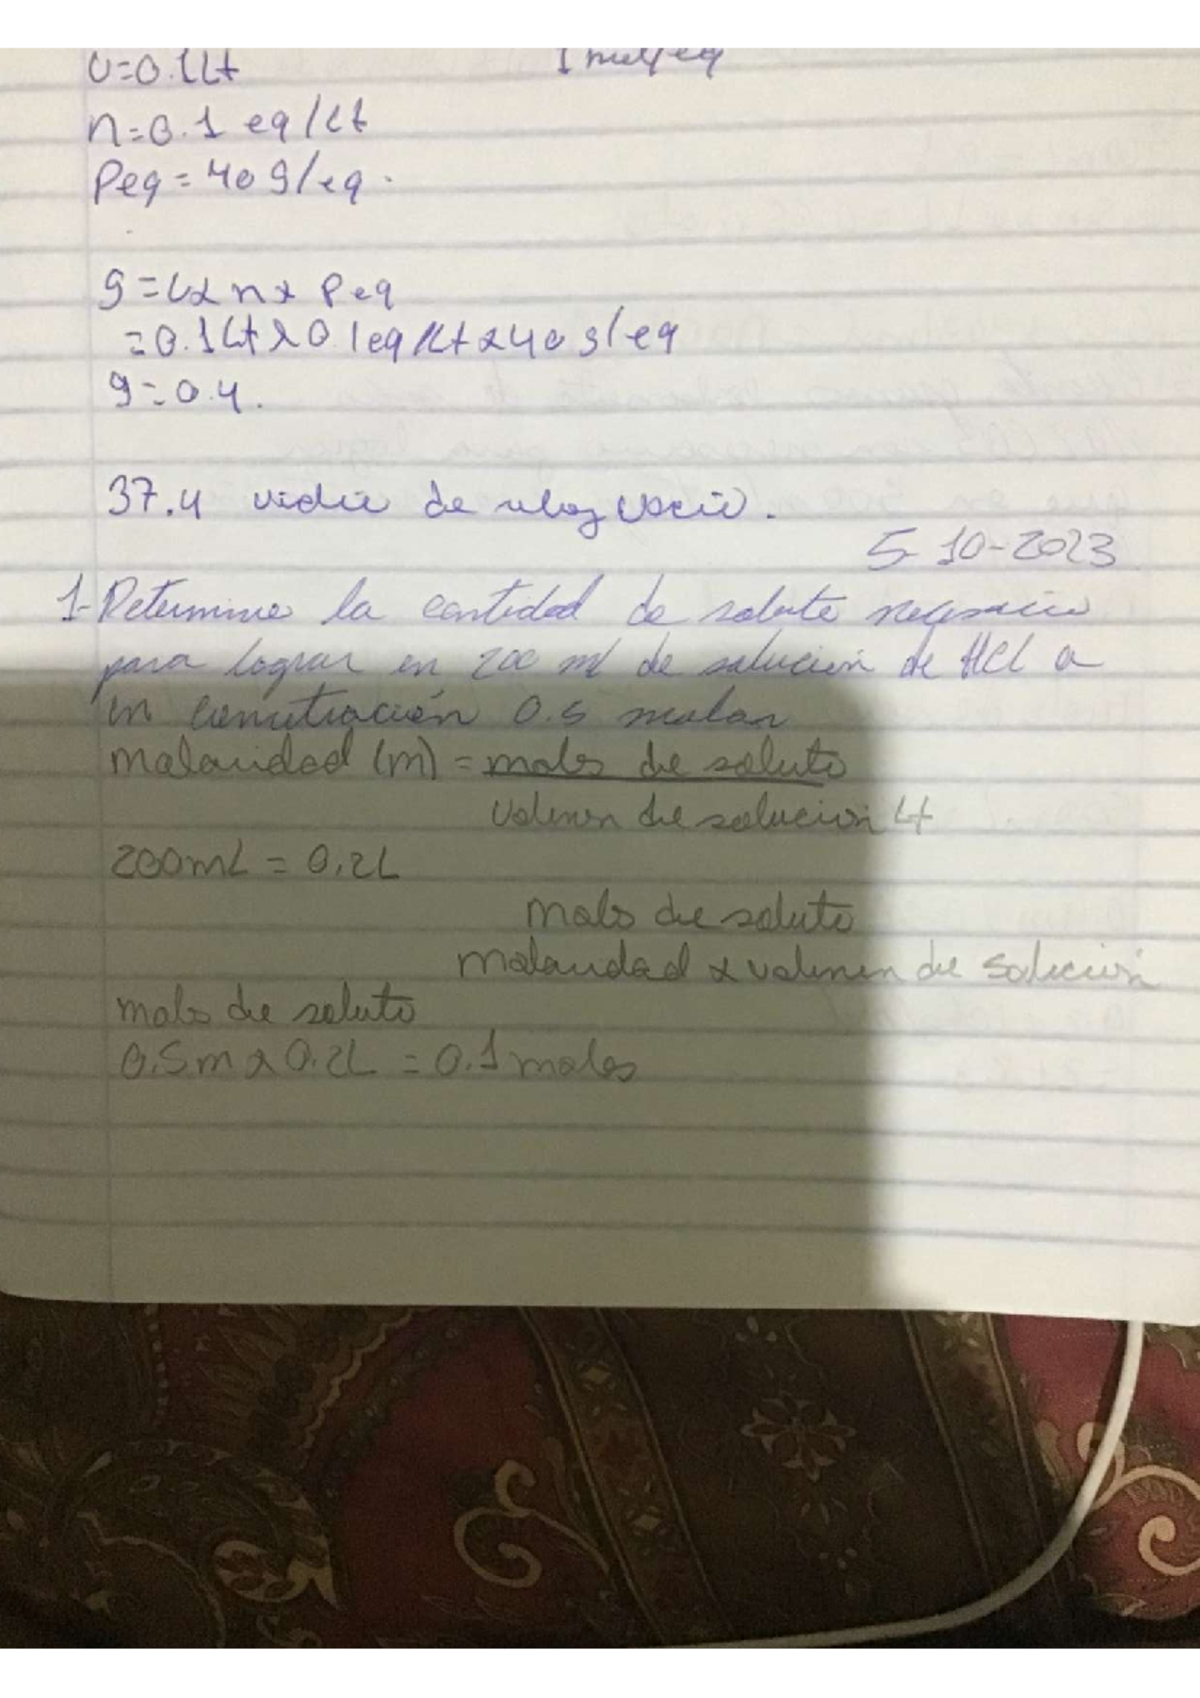 V=0.1Lt
n=0.1 eq/Lt
Peq=40g/eq.
g=Lxnx Peq
=0.1Lt x 0.1eq/Lt x 40g/eq
g=0.4.
37.4 vidrio de reloj vacio.
5-10-2023
1-Determine la cantidad de soluto necesario
para lograr en 200 ml de solución de HCl a
en concentración 0.5 molar
molaridad (m) = moles de soluto
volumen de solucion Lt
200mL = 0.2L
mols de soluto
molaridad x volumen de solucion
mols de soluto
0.5m x 0.2L = 0.1 moles